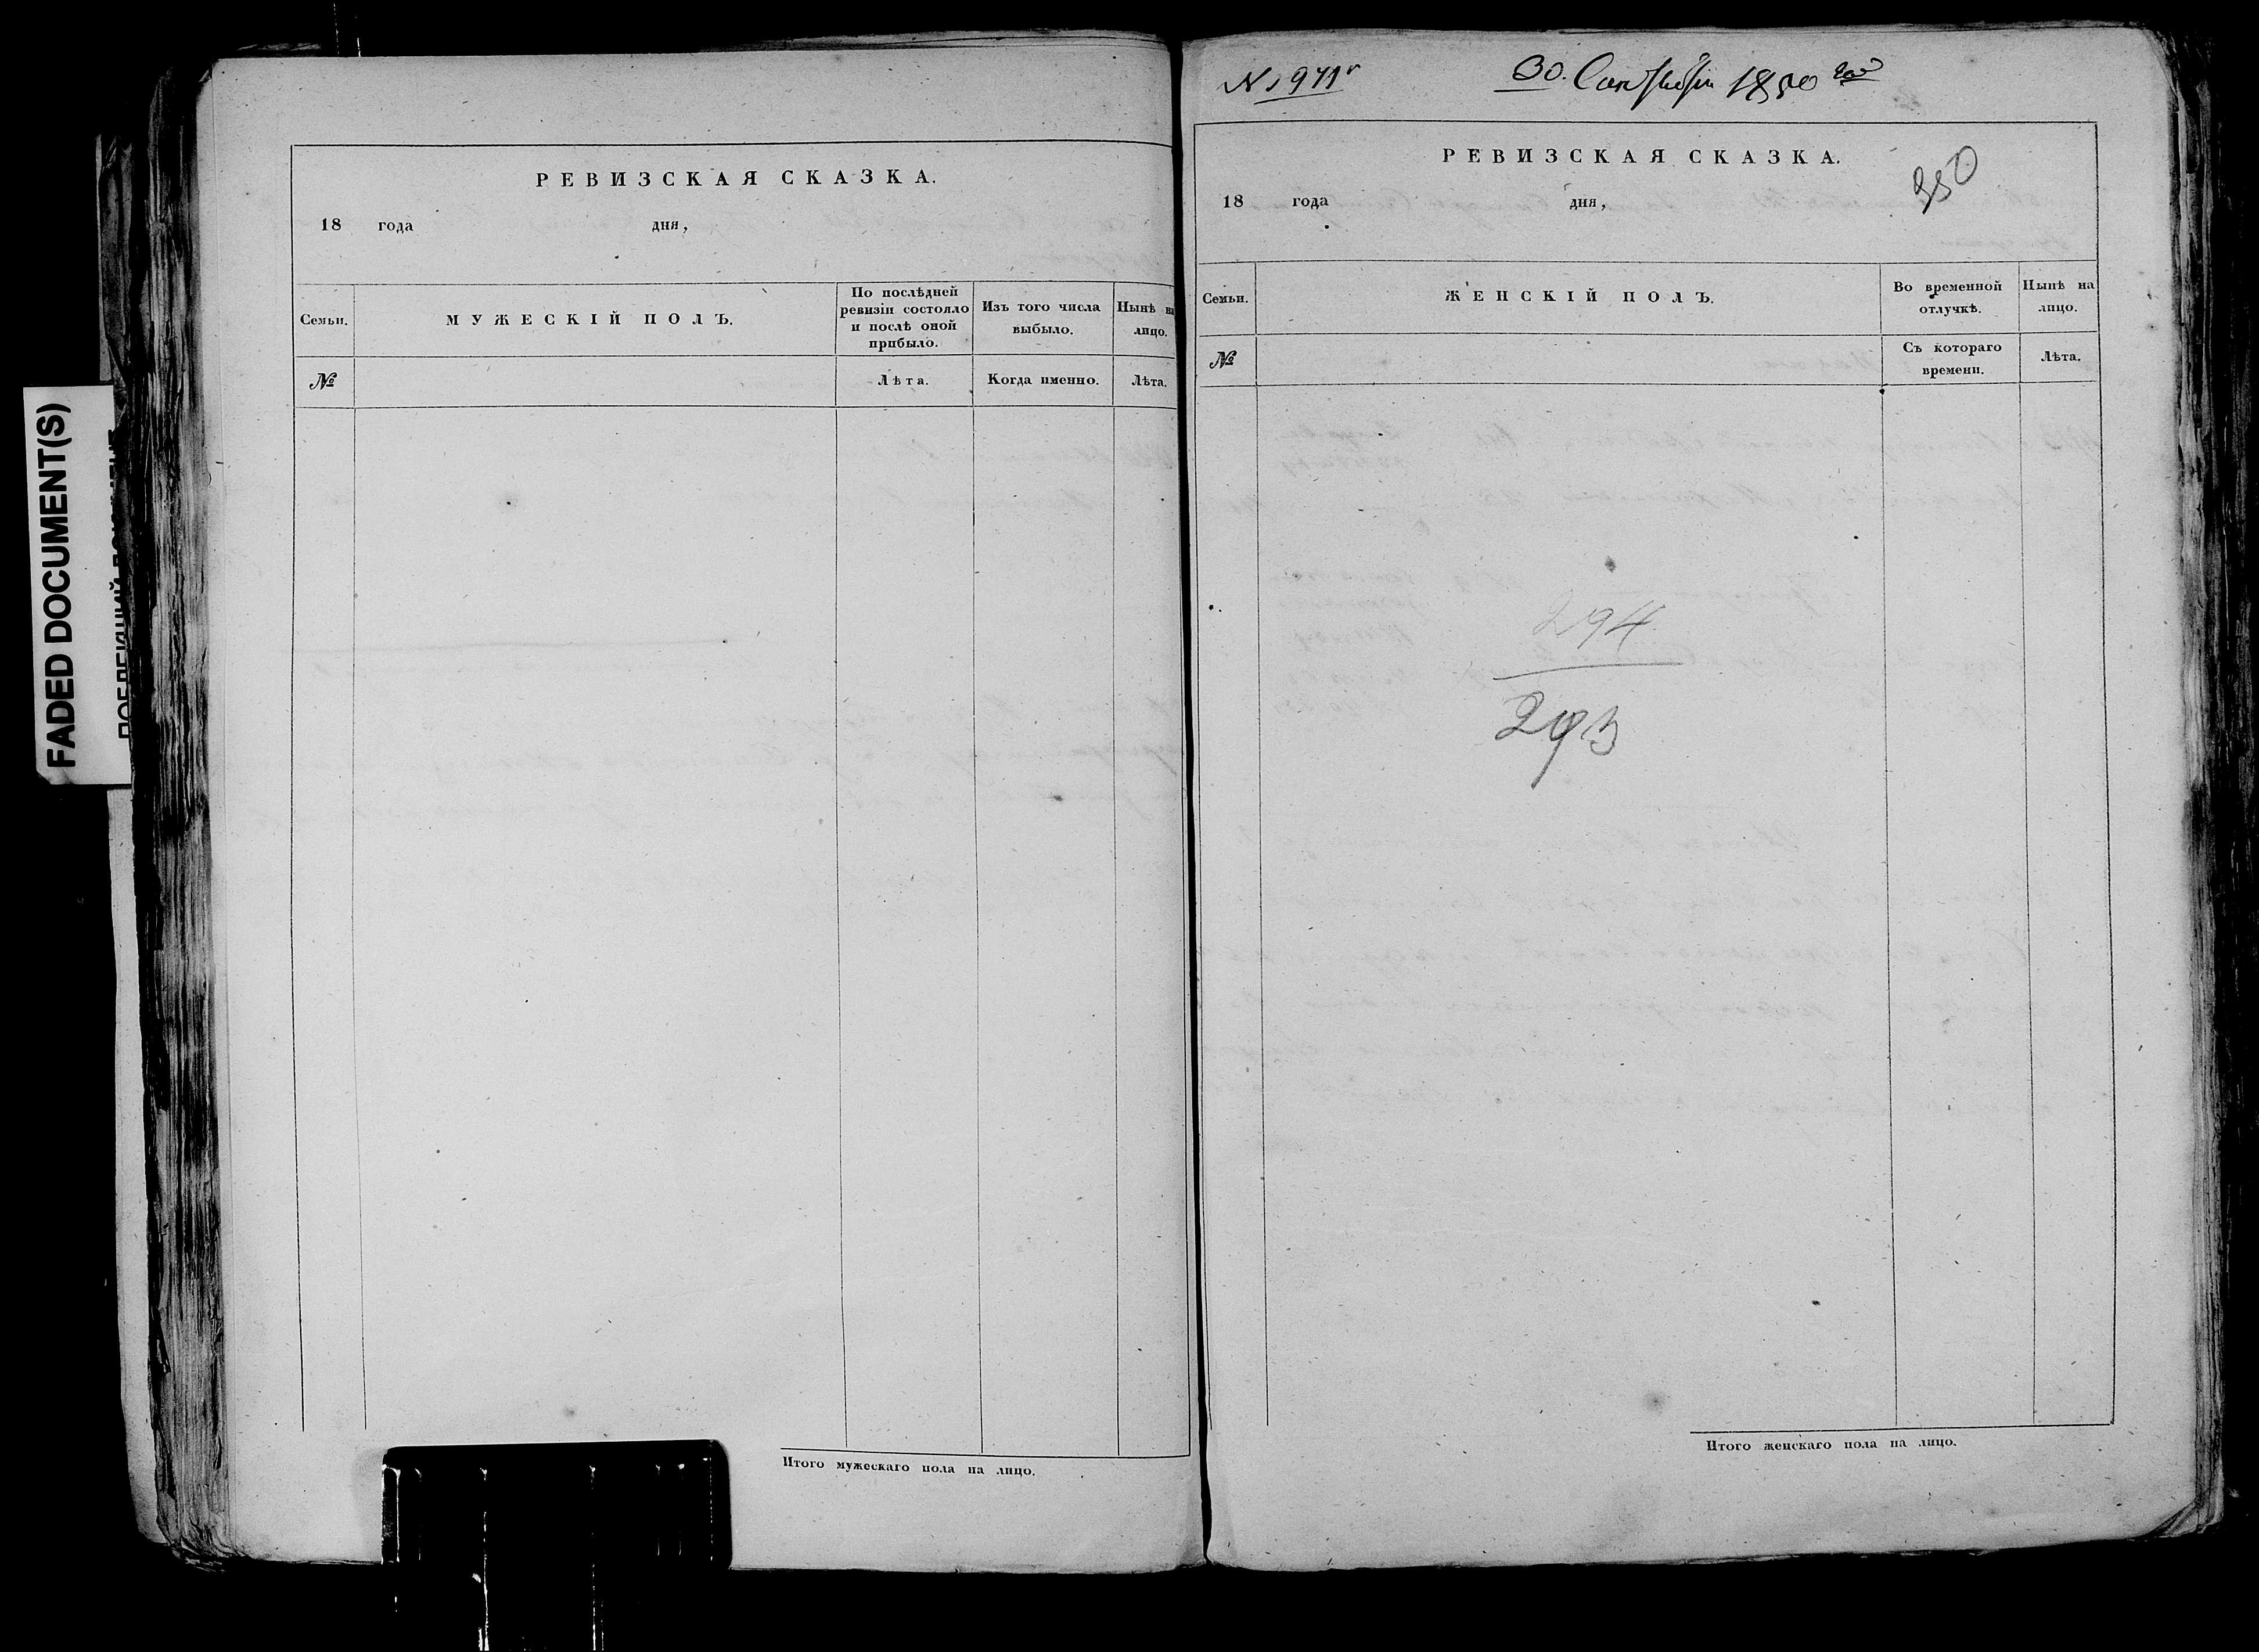 FADED DOCUMENT(S)
РЕВИЗСКАЯ СКАЗКА.
18 года дня,
Семьи.
МУЖЕСКІЙ ПОЛЪ.
По послѣдней
ревизіи состояло
и послѣ оной
прибыло.
Изъ того числа
выбыло.
Нынѣ на
лицо.
№
Лѣта.
Когда именно.
Лѣта.
Итого мужескаго пола на лицо.
30. 1850
РЕВИЗСКАЯ СКАЗКА.
350
18 года дня,
Семьи.
ЖЕНСКІЙ ПОЛЪ.
Во временной
отлучкѣ.
Нынѣ на
лицо.
№
Съ котораго
времени.
Лѣта.
294
293
Итого женскаго пола на лицо.